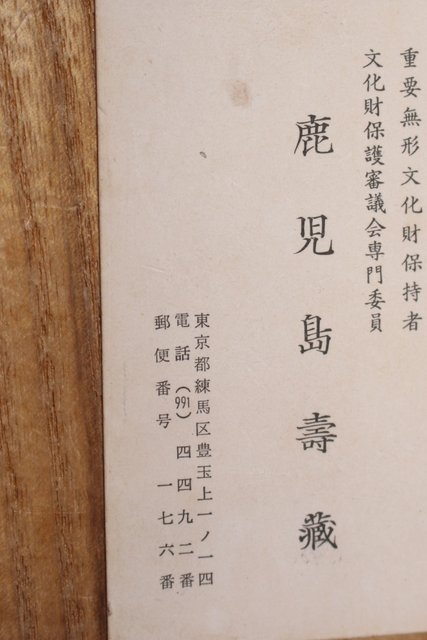 重要無形文化財保持者
文化財保護審議会専門委員
鹿児島壽藏
東京都練馬区豊玉上一ノ一四
電話(991)四四九二番
郵便番号 一七六番